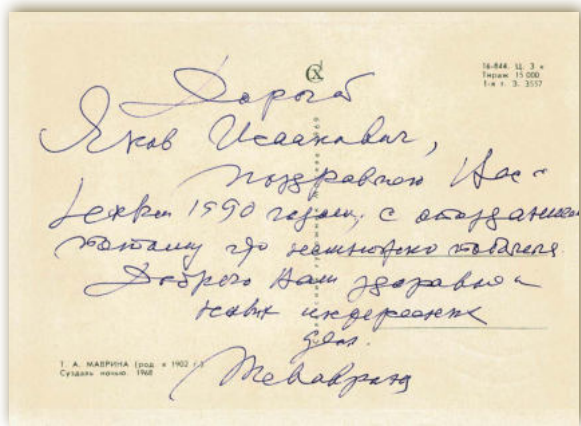 СХ
16-844. Ц. 3 к
Тираж 15 000
1-я т. З. 3557
Дорогой
Яков Исаакович,
поздравляю Вас с
новым 1990 годом, с опозданием
потому что немножко поболела.
Доброго Вам здоровья и
новых интересных
дел.
ТМаврина
Т. А. МАВРИНА (род. в 1902 г.)
Суздаль ночью. 1968